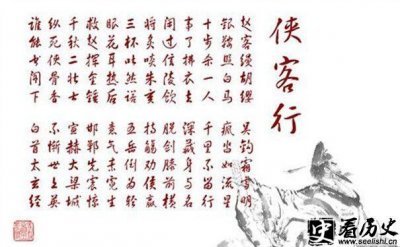 侠客行
赵客缦胡缨 吴钩霜雪明
银鞍照白马 飒沓如流星
十步杀一人 千里不留行
事了拂衣去 深藏身与名
闲过信陵饮 脱剑膝前横
将炙啖朱亥 持觞劝侯嬴
三杯吐然诺 五岳倒为轻
眼花耳热后 意气素霓生
救赵挥金锤 邯郸先震惊
千秋二壮士 烜赫大梁城
纵死侠骨香 不惭世上英
谁能书阁下 白首太玄经
看历史
www.seelishi.cn